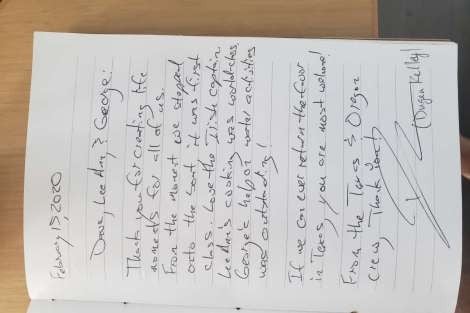 February 15, 2020
Dave, Lee Ann, & George:
Thank you for creating life
moments for all of us.
From the moment we stepped
onto the boat it was first
class. Love the Irish captain.
LeeAnn's cooking was worldclass.
George's help on water activities
was outstanding!
If we can ever return the favor
in Texas, you are most welcome!
From the Texas & Oregon
crew, Thank you!
(Dugan Kelley)